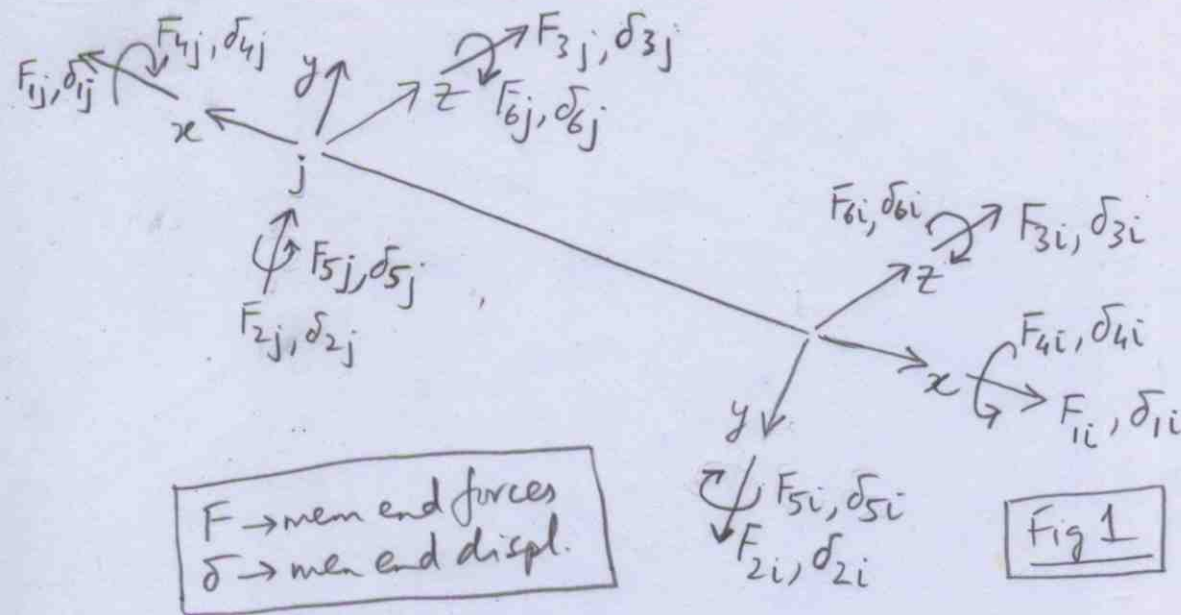 F4j, δ4j
F1j, δ1j
x
y
z
F3j, δ3j
F6j, δ6j
j
F5j, δ5j
F2j, δ2j
F6i, δ6i
F3i, δ3i
z
F4i, δ4i
x
F1i, δ1i
y
F5i, δ5i
F2i, δ2i
F → mem end forces
δ → mem end displ.
Fig 1